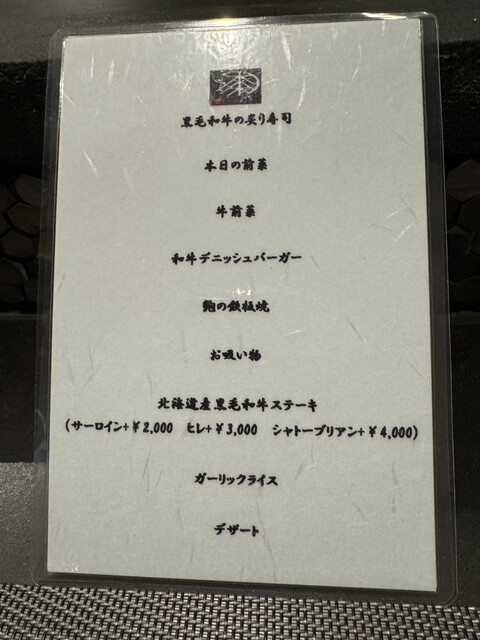 黒毛和牛の炙り寿司
本日の前菜
牛前菜
和牛デニッシュバーガー
鮑の鉄板焼
お吸い物
北海道産黒毛和牛ステーキ
(サーロイン+¥2,000 ヒレ+¥3,000 シャトーブリアン+¥4,000)
ガーリックライス
デザート